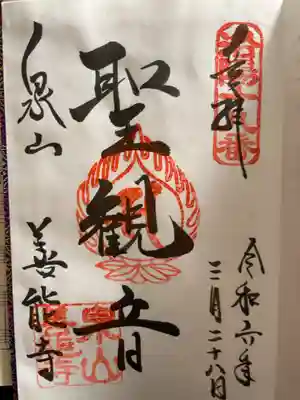 奉拝
令和六年
三月二十八日
聖観音
泉山
善能寺
泉山
善能寺